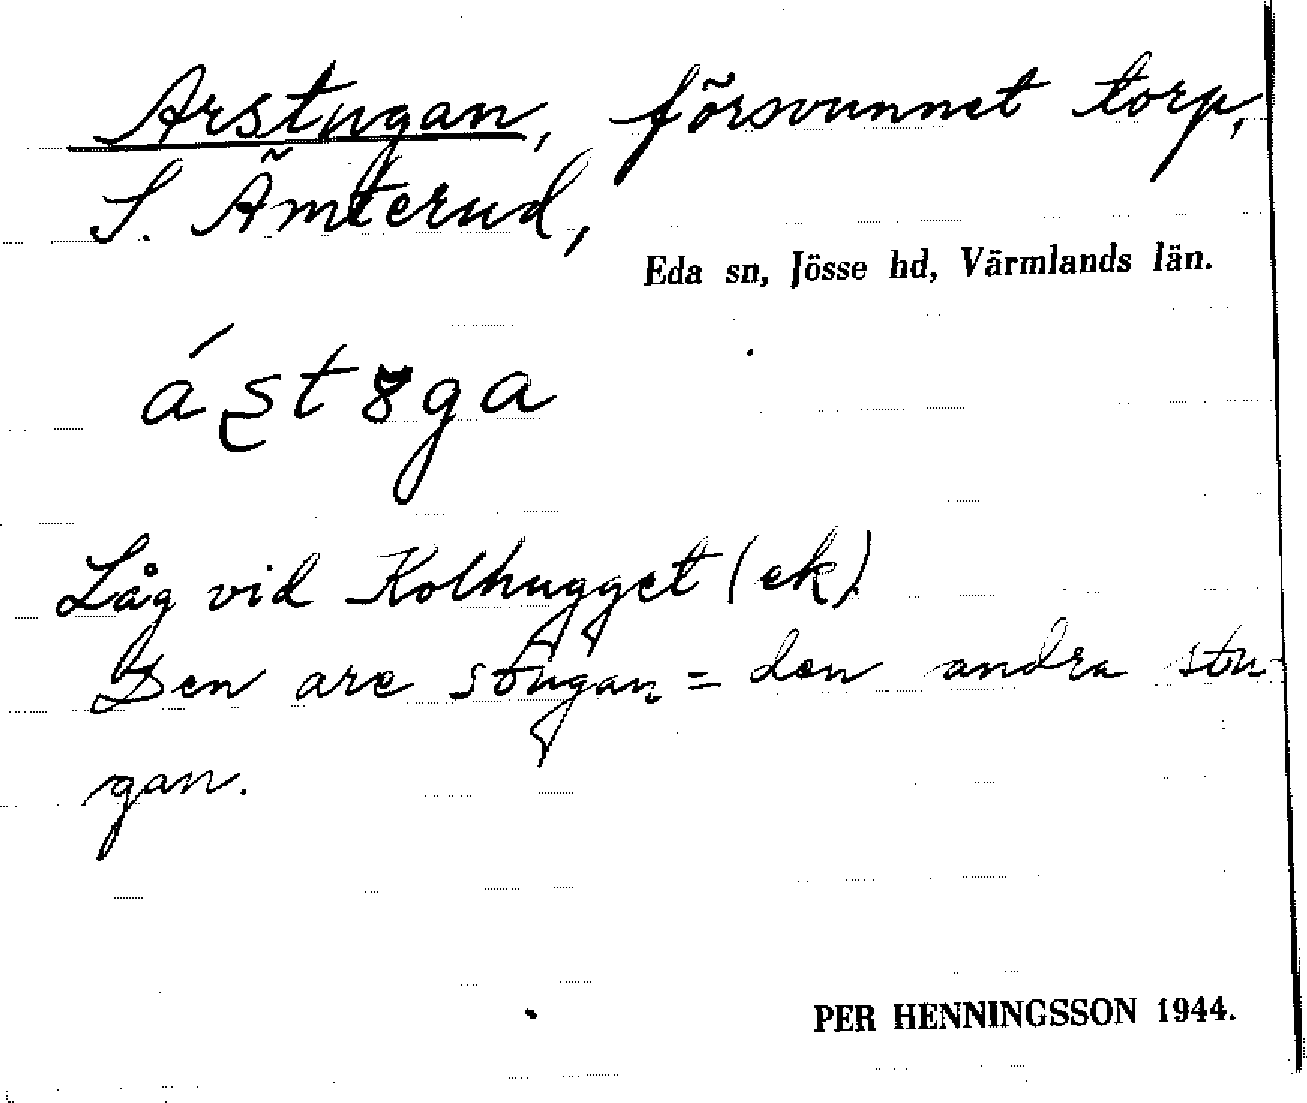 Arstugan, försvunnet torp,
S. Ämterud,
Eda sn, Jösse hd, Värmlands län.
ást8ga
Låg vid Kolhugget (ek)
Den are stugan = den andra stu-
gan.
PER HENNINGSSON 1944.